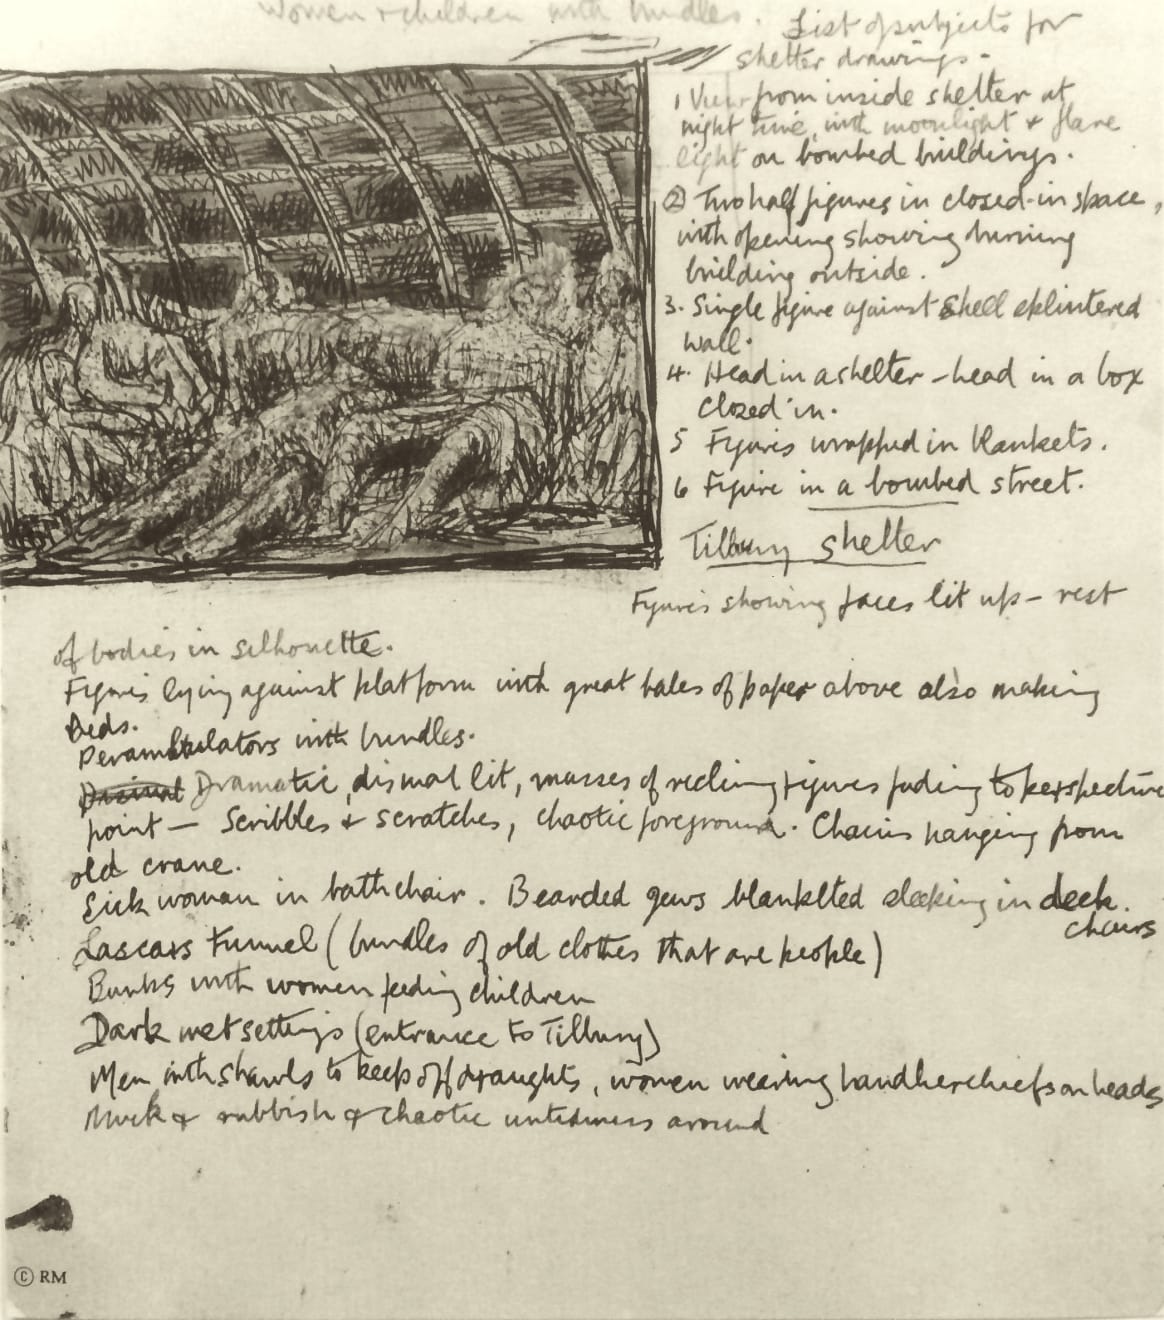 Women & children with bundles.
List of subjects for
shelter drawings -
1 View from inside shelter at
night time, with moonlight & flare
light on bombed buildings.
② Two half figures in closed-in space,
with opening showing burning
building outside.
3. Single figure against shell splintered
wall.
4. Head in a shelter - head in a box
closed in.
5 Figures wrapped in blankets.
6 Figure in a bombed street.
Tilbury shelter
Figures showing faces lit up - rest
of bodies in silhouette.
Figures lying against platform with great bales of paper above also making
beds.
Perambulators with bundles.
Dramatic, dismal lit, masses of reclining figures fading to perspective
point — Scribbles & scratches, chaotic foreground. Chains hanging from
old crane.
Sick woman in bathchair. Bearded jews blanketed sleeping in deck
chairs
Lascars Tunnel (bundles of old clothes that are people)
Bunks with women feeding children
Dark wet settings (entrance to Tilbury)
Men with shawls to keep off draughts, women wearing handkerchiefs on heads
Muck & rubbish & chaotic untidiness around
© RM